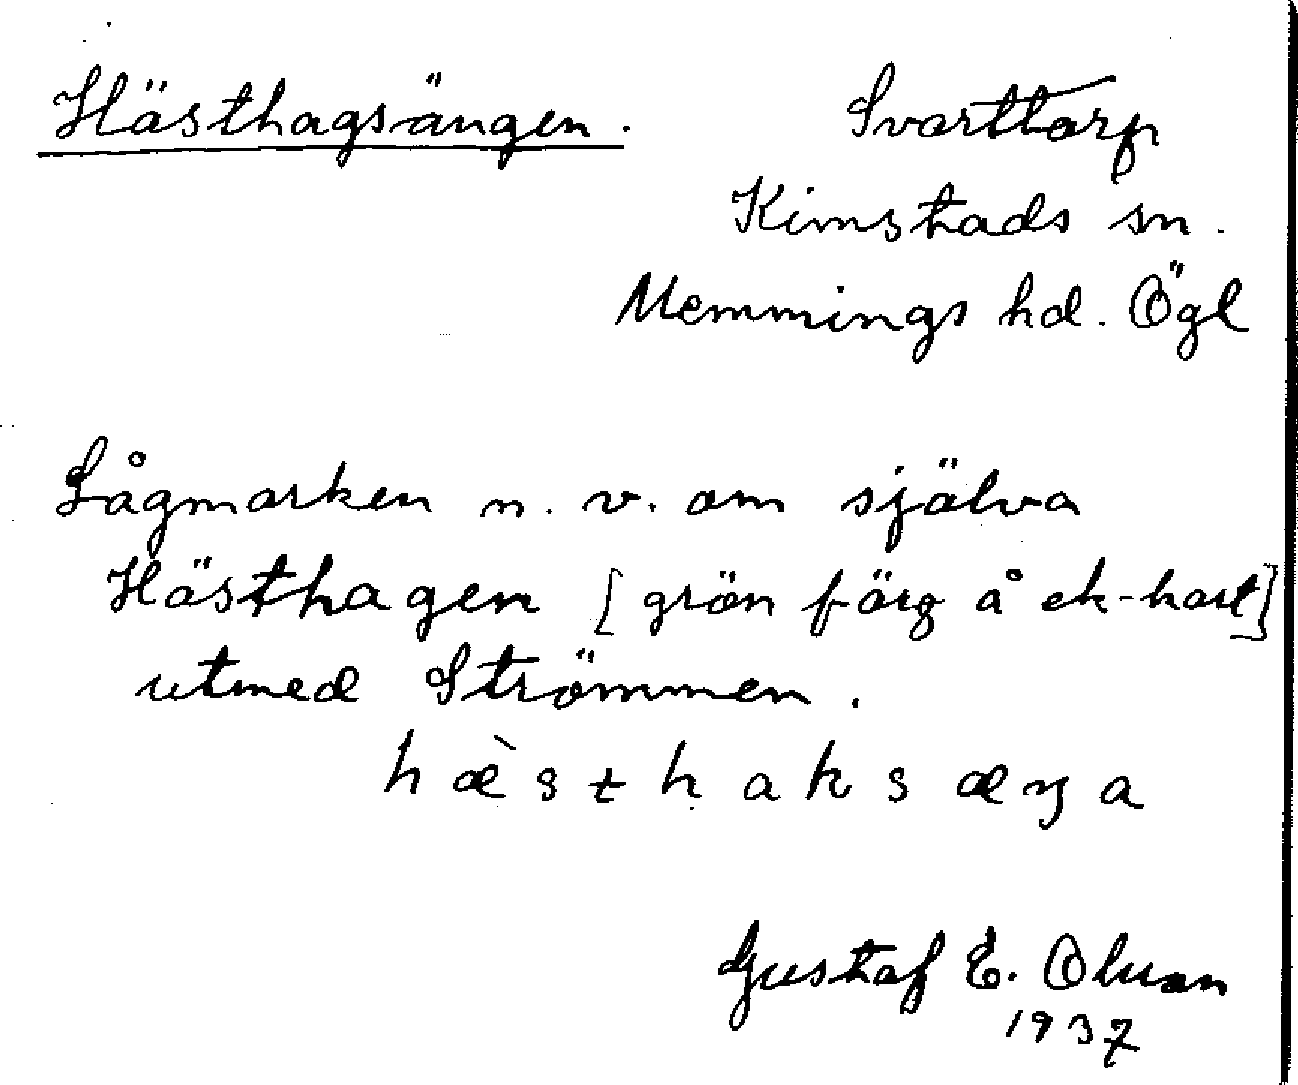 Hästhagsängen.
Svarttorp
Kimstads sn.
Memmings hd. Ögl
Lågmarken n. v. om själva
Hästhagen [grön färg å ek-kart]
utmed Strömmen.
hæ̀sthaksæŋa
Gustaf E. Olsson
1937